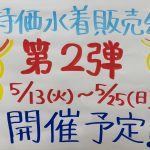 特価水着販売会
第2弾
5/13(火)～5/25(日)
開催予定!